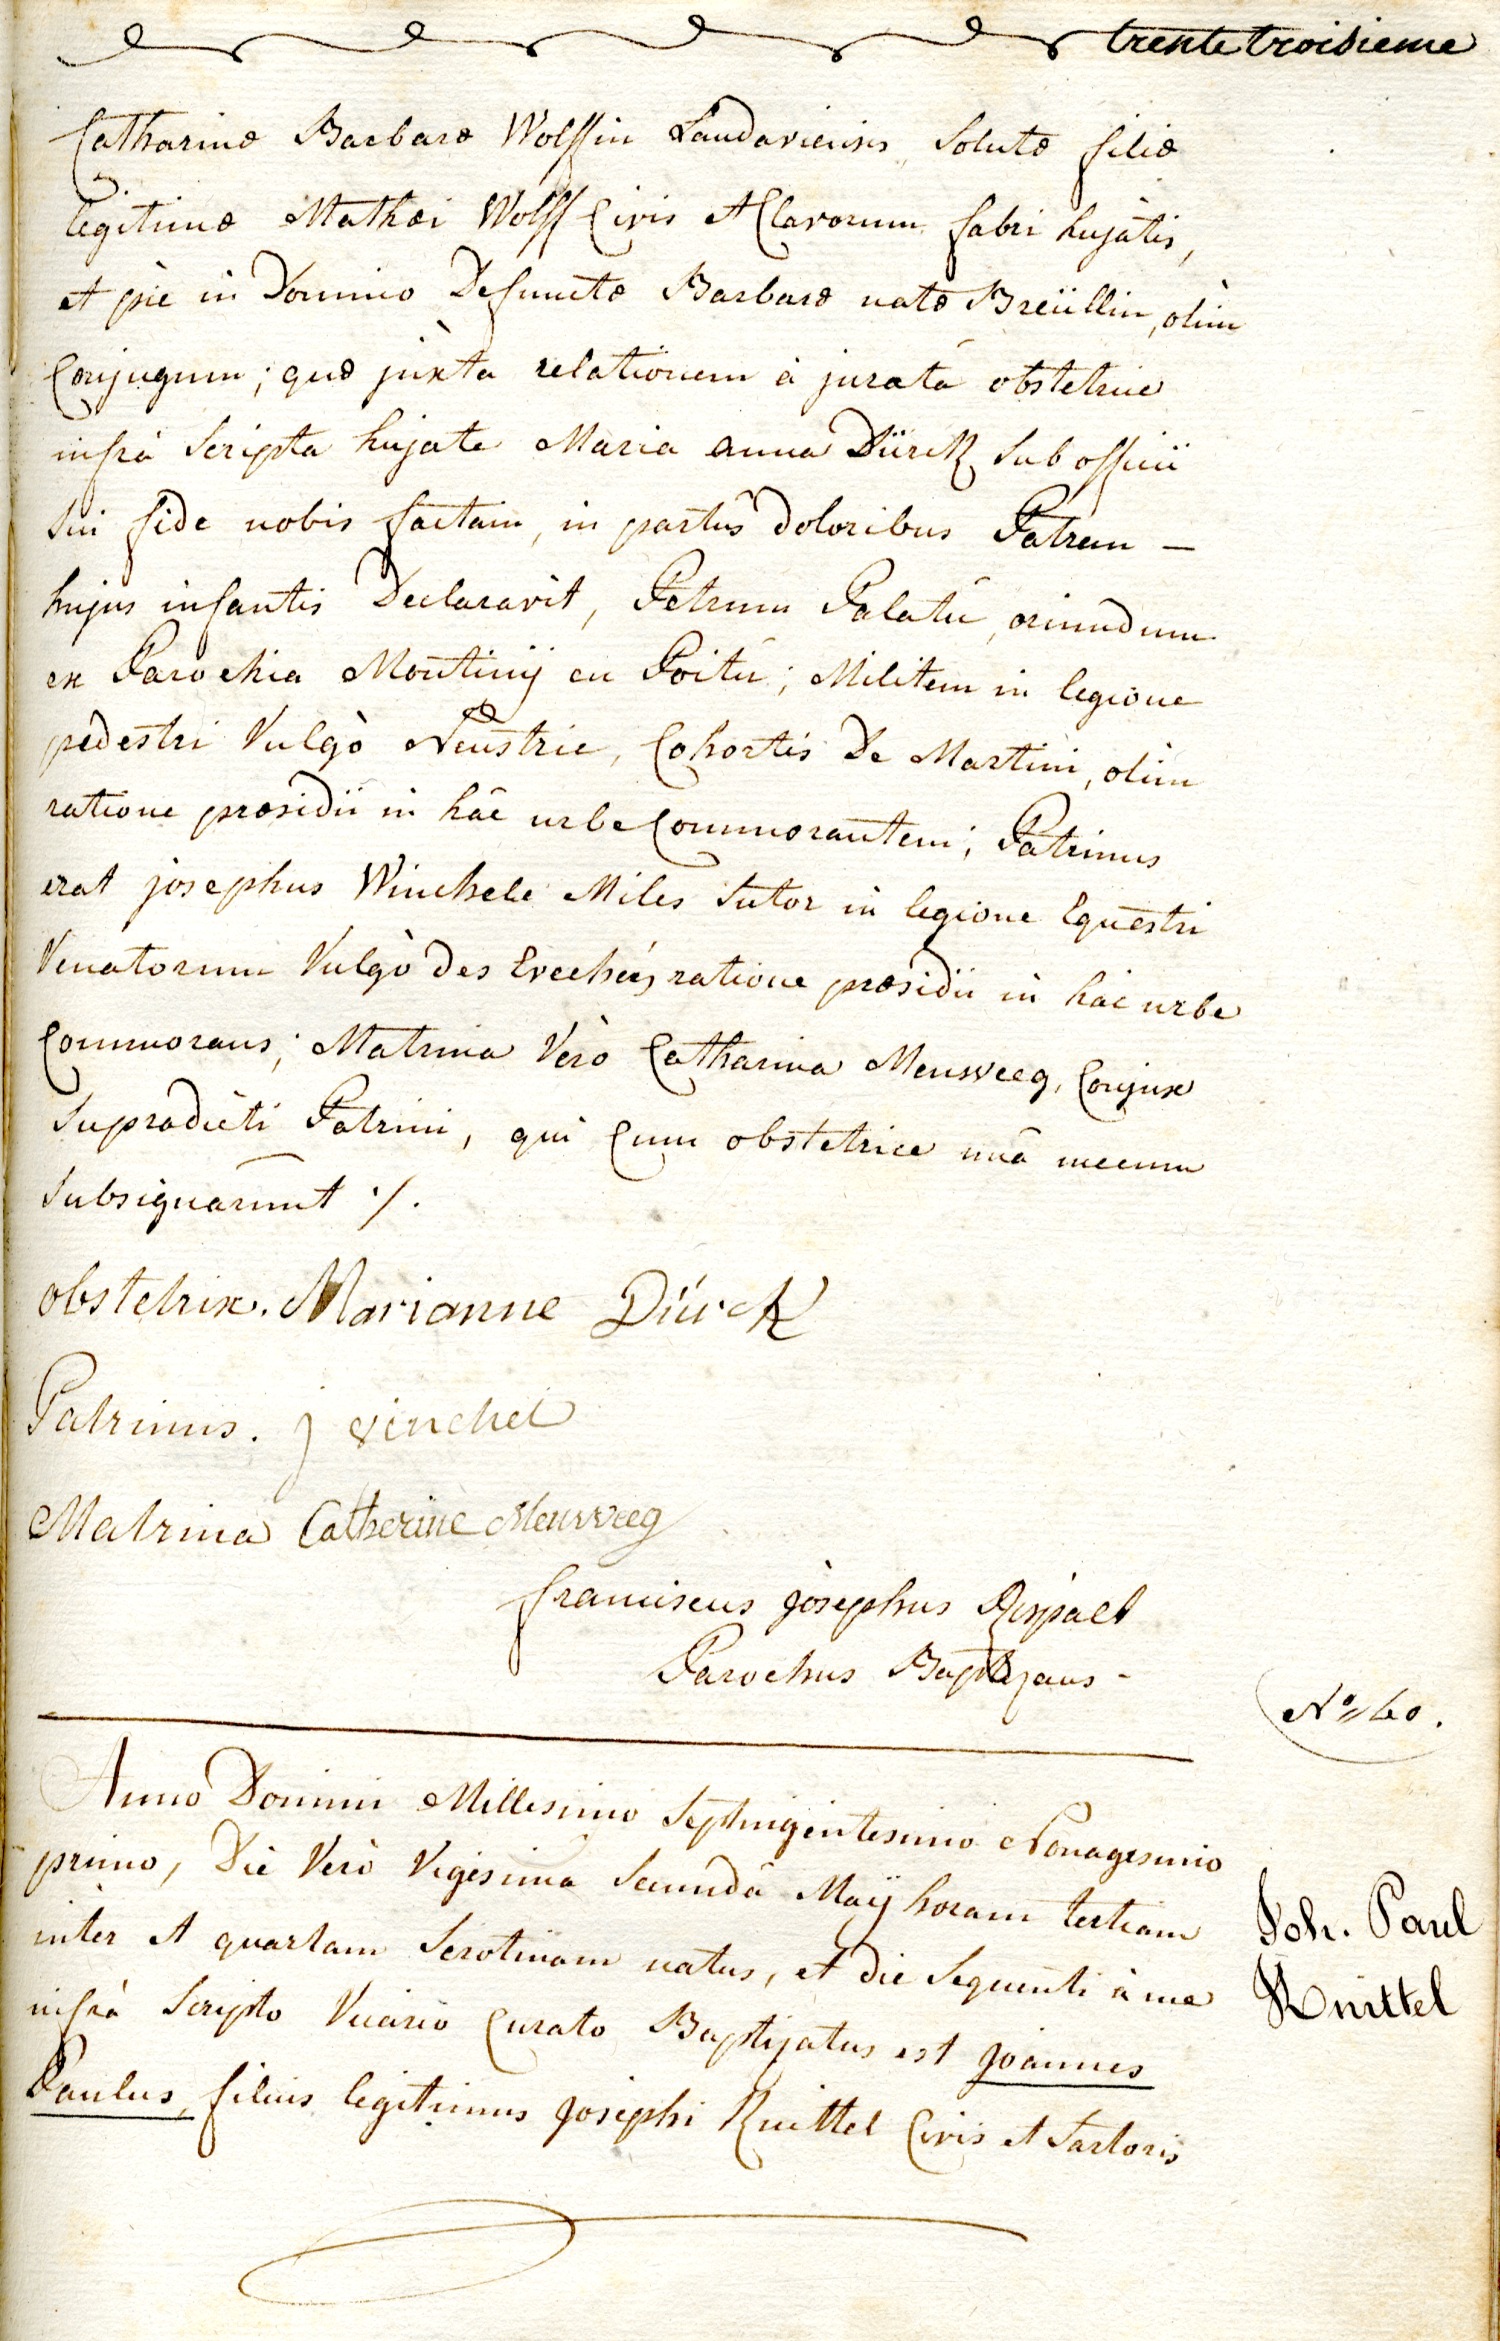 trente troisieme
Catharinæ Barbaræ Wolffin Landaviensis Solutæ filiæ
legitimæ Mathæi Wolff Civis et Clavorum fabri hujatis,
et piè in Domino Defunctæ Barbaræ natæ Breüllin, olim
Conjugum; quæ juxta relationem à jurata obstetrice
infrà Scripta hujate Maria anna Dürck Sub officii
Sui fide nobis factam, in partûs doloribus Patrem —
hujus infantis Declaravit, Petrum Palatu, oriundum
ex Parochia Montinij en Poitu; Militem in legione
pedestri Vulgò Neustrie, Cohortis De Martini, olim
ratione præsidii in hac urbe Commorantem; Patrinus
erat josephus Winchele Miles Sutor in legione Equestri
Venatorum Vulgò des Evechés ratione præsidii in hac urbe
Commorans; Matrina Verò Catharina Mensweeg, Conjux
Supradicti Patrini, qui Cum obstetrice unà mecum
Subsignarunt ·/.
obstetrix. Marianne Dürck
Patrinus. j vinchel
Matrina Catherine Mensweeg
franciscus josephus
Parochus Baptizans -
No 60.
Anno Domini Millesimo Septingentesimo Nonagesimo
primo, Die Verò Vigesima Secunda Maÿ horam tertiam
inter et quartam Serotinam natus, et die Sequenti à me
infrà Scripto Vicario Curato Baptizatus est joannes
Paulus, filius legitimus josephi Knittel Civis et Sartoris
Joh. Paul
Knittel